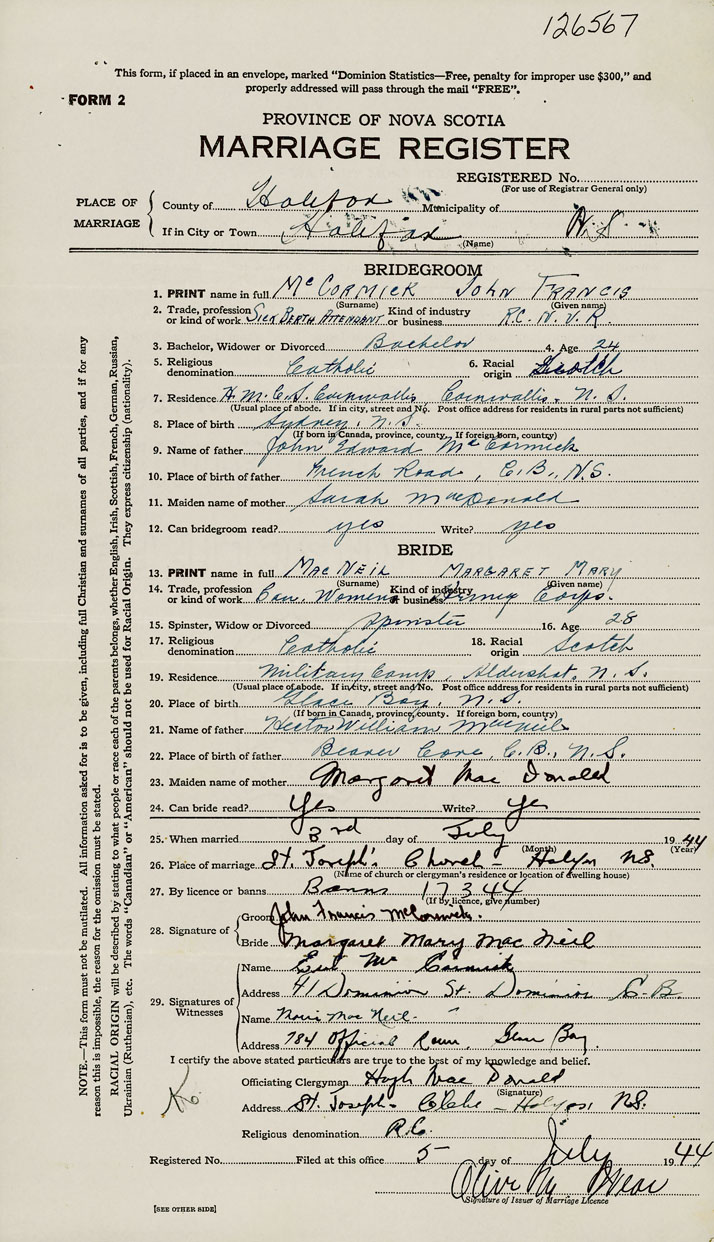 126567
This form, if placed in an envelope, marked "Dominion Statistics—Free, penalty for improper use $300," and
properly addressed will pass through the mail "FREE".
FORM 2
PROVINCE OF NOVA SCOTIA
MARRIAGE REGISTER
REGISTERED No.
(For use of Registrar General only)
PLACE OF MARRIAGE
County of Halifax Municipality of
If in City or Town Halifax N.S.
(Name)
BRIDEGROOM
1. PRINT name in full McCORMICK JOHN FRANCIS
(Surname) (Given name)
2. Trade, profession or kind of work SICK BERTH ATTENDANT Kind of industry or business R.C.N.V.R.
3. Bachelor, Widower or Divorced Bachelor 4. Age 24
5. Religious denomination Catholic 6. Racial origin Scotch
7. Residence H.M.C.S. Cornwallis, Cornwallis, N.S.
(Usual place of abode. If in city, street and No. Post office address for residents in rural parts not sufficient)
8. Place of birth Sydney, N.S.
(If born in Canada, province, county. If foreign born, country)
9. Name of father John Edward McCormick
10. Place of birth of father French Road, C.B., N.S.
11. Maiden name of mother Sarah MacDonald
12. Can bridegroom read? yes Write? yes
BRIDE
13. PRINT name in full MACNEIL MARGARET MARY
(Surname) (Given name)
14. Trade, profession or kind of work Can. Womens Kind of industry or business Army Corps.
15. Spinster, Widow or Divorced Spinster 16. Age 28
17. Religious denomination Catholic 18. Racial origin Scotch
19. Residence Military Camp, Aldershot, N.S.
(Usual place of abode. If in city, street and No. Post office address for residents in rural parts not sufficient)
20. Place of birth Glace Bay, N.S.
(If born in Canada, province, county. If foreign born, country)
21. Name of father Hector William MacNeil
22. Place of birth of father Beaver Cove, C.B., N.S.
23. Maiden name of mother Margaret Mac Donald
24. Can bride read? Yes Write? yes
25. When married 3rd day of July 1944
(Month) (Year)
26. Place of marriage St. Joseph's Church - Halifax NS.
(Name of church or clergyman's residence or location of dwelling house)
27. By licence or banns Banns 17344
(If by licence, give number)
28. Signature of
Groom John Francis McCormick.
Bride Margaret Mary Mac Neil
29. Signatures of Witnesses
Name Mc Cormick
Address 41 Dominion St. Dominion C.B.
Name Mac Neil
Address 784 Official Row, Glace Bay
I certify the above stated particulars are true to the best of my knowledge and belief.
Officiating Clergyman Hugh Mac Donald
(Signature)
Address St. Joseph's Glebe - Halifax NS.
Religious denomination R.C.
Registered No. Filed at this office 5 day of July 1944
Olive M.
Signature of Issuer of Marriage Licence
[SEE OTHER SIDE]
NOTE.—This form must not be mutilated. All information asked for is to be given, including full Christian and surnames of all parties, and if for any
reason this is impossible, the reason for the omission must be stated.
RACIAL ORIGIN will be described by stating to what people or race each of the parents belongs, whether English, Irish, Scottish, French, German, Russian,
Ukrainian (Ruthenian), etc. The words "Canadian" or "American" should not be used for Racial Origin. They express citizenship (nationality).